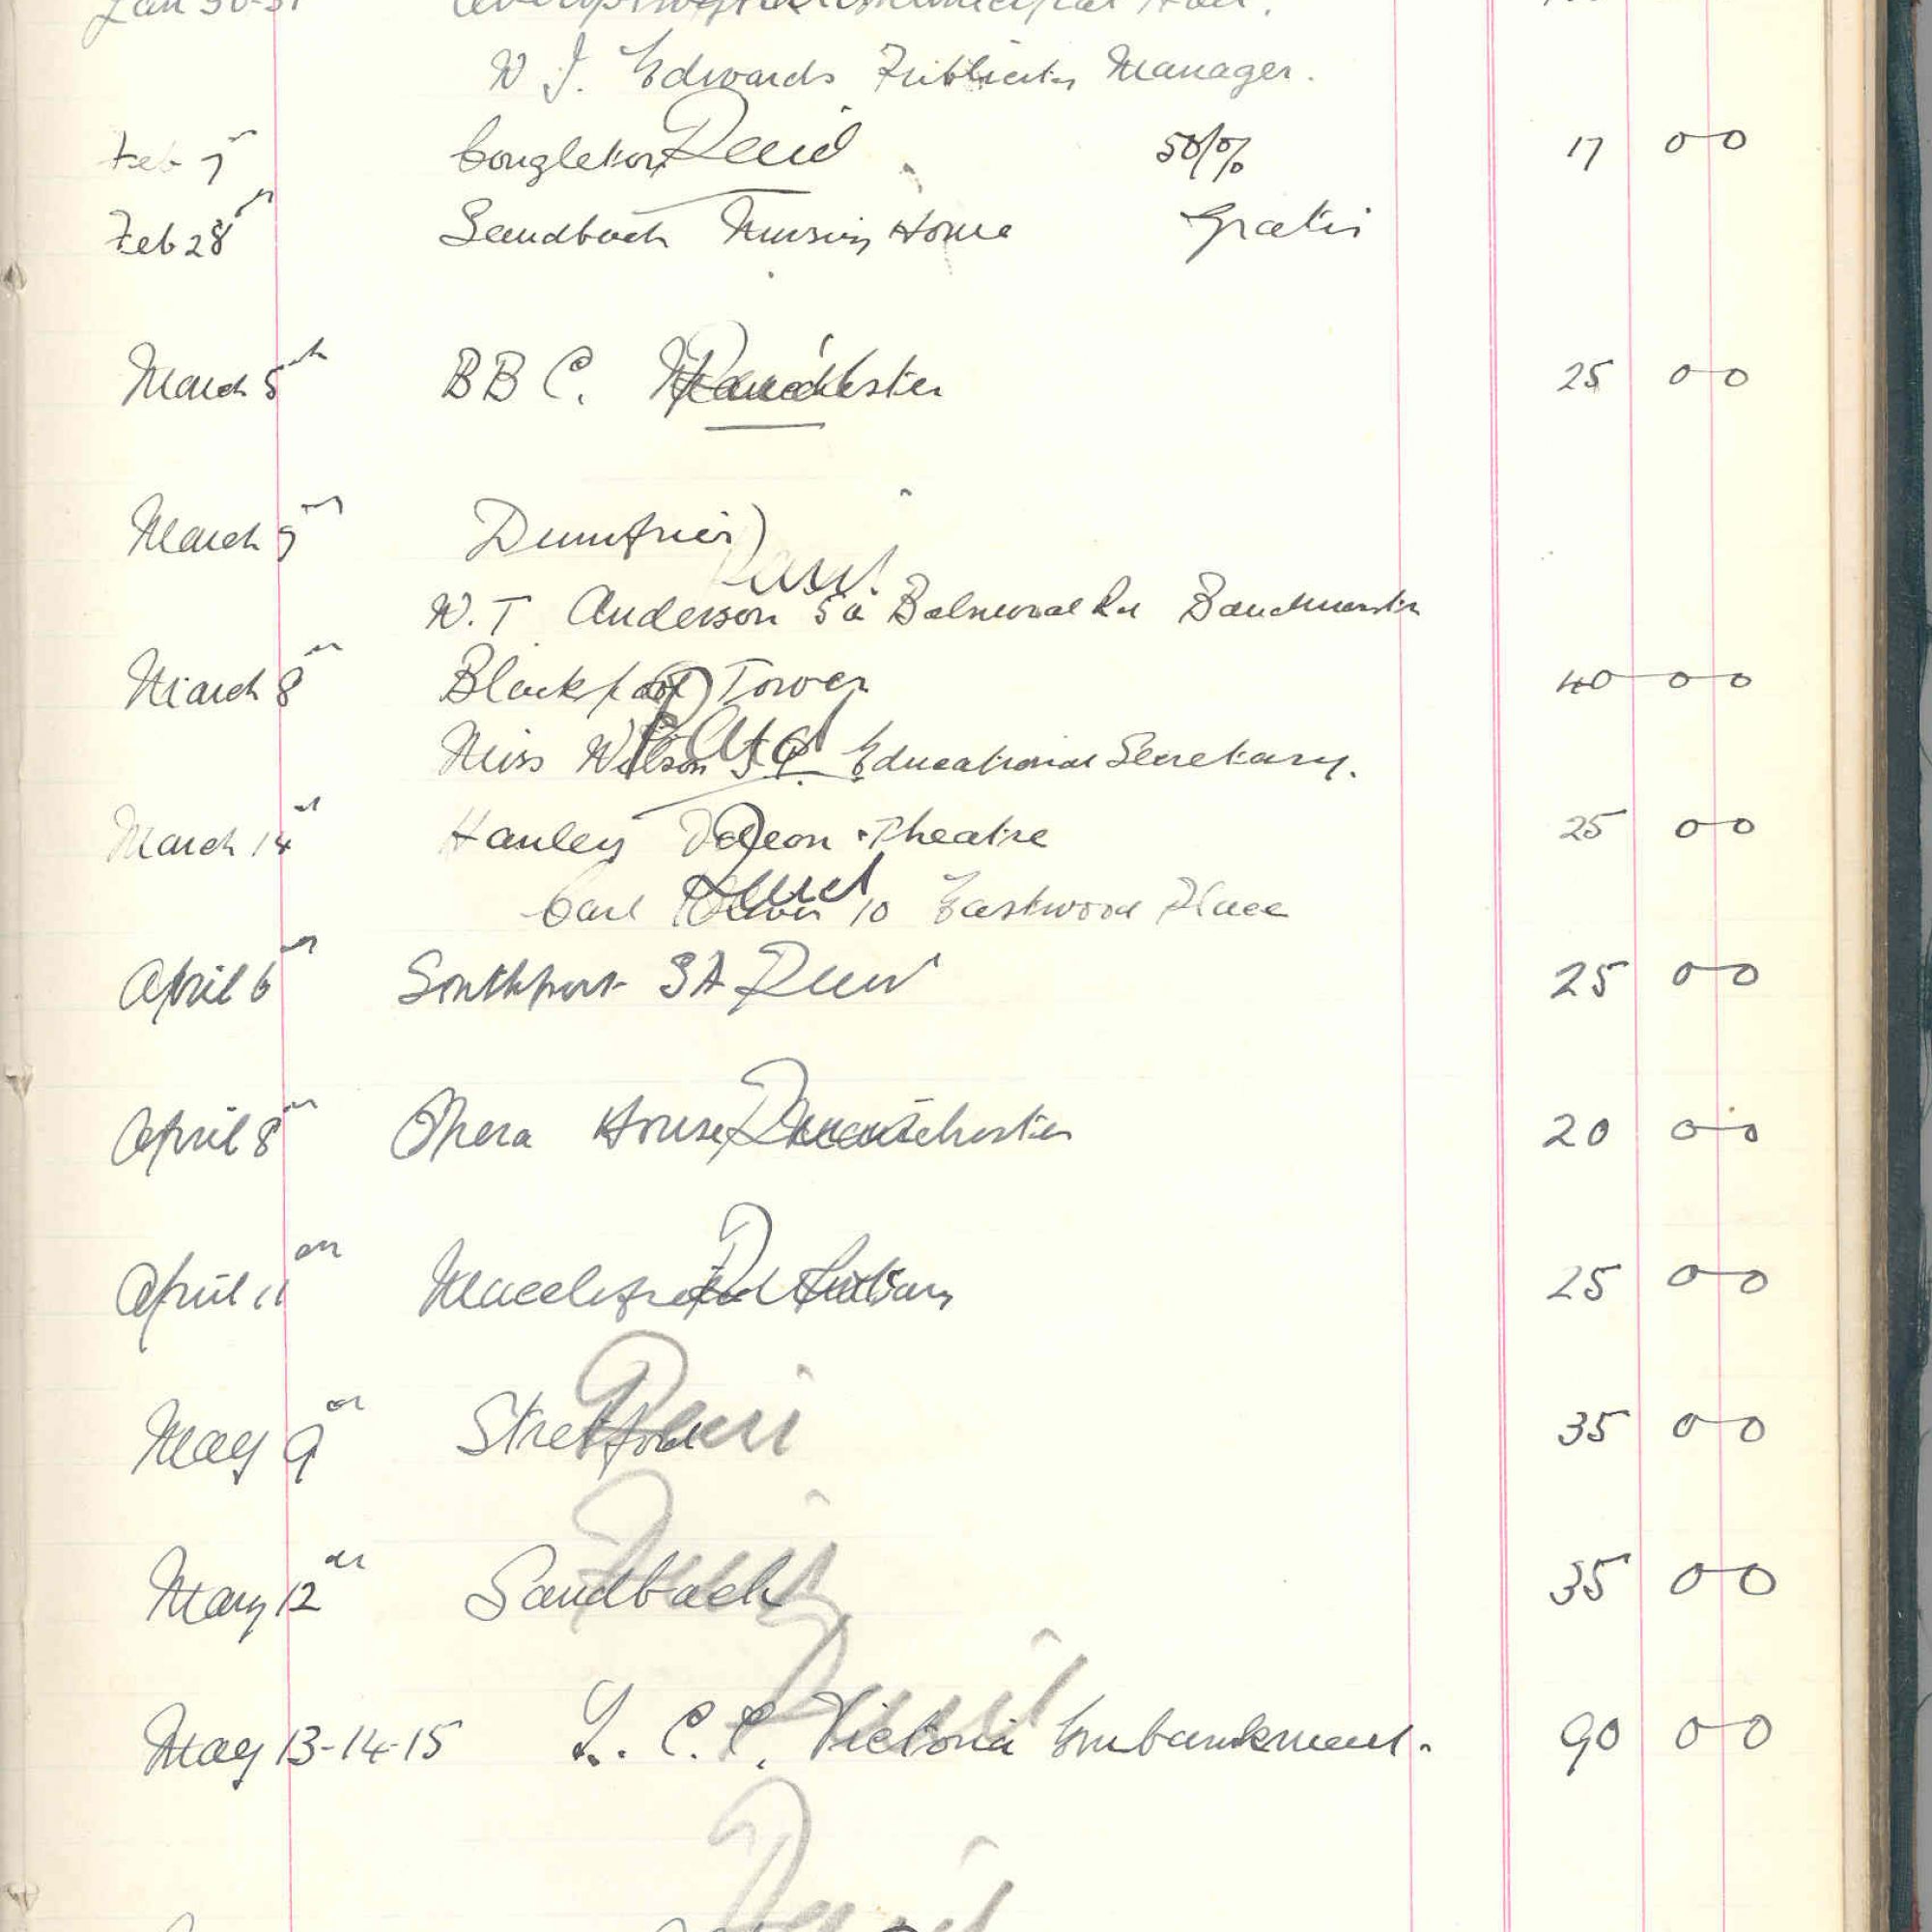 Jan 30-31 Municipal Hall.
W J. Edwards Publicity Manager.
Feb 7th Congleton Paid 50/50% 17 0 0
Feb 28th Sandbach Nursing Home Gratis
March 5th BBC. Manchester Paid 25 0 0
March 9th Dumfries) Paid
W. T Anderson 5a Balmoral Rd
March 8th Blackpool Tower 40 0 0
Paid
Miss Wilson J P. Educational Secretary.
March 14th Hanley Odeon Theatre 25 0 0
Paid
Carl Oliver 10 Eastwood Place
April 6th Southport SA Paid 25 0 0
April 8th Opera House Manchester Paid 20 0 0
April 11th Macclesfield Paid 25 0 0
May 9th Stretford Paid 35 0 0
May 12th Sandbach Paid 35 0 0
Paid
May 13-14-15 L. C. C. Victoria Embankment. 90 0 0
Paid